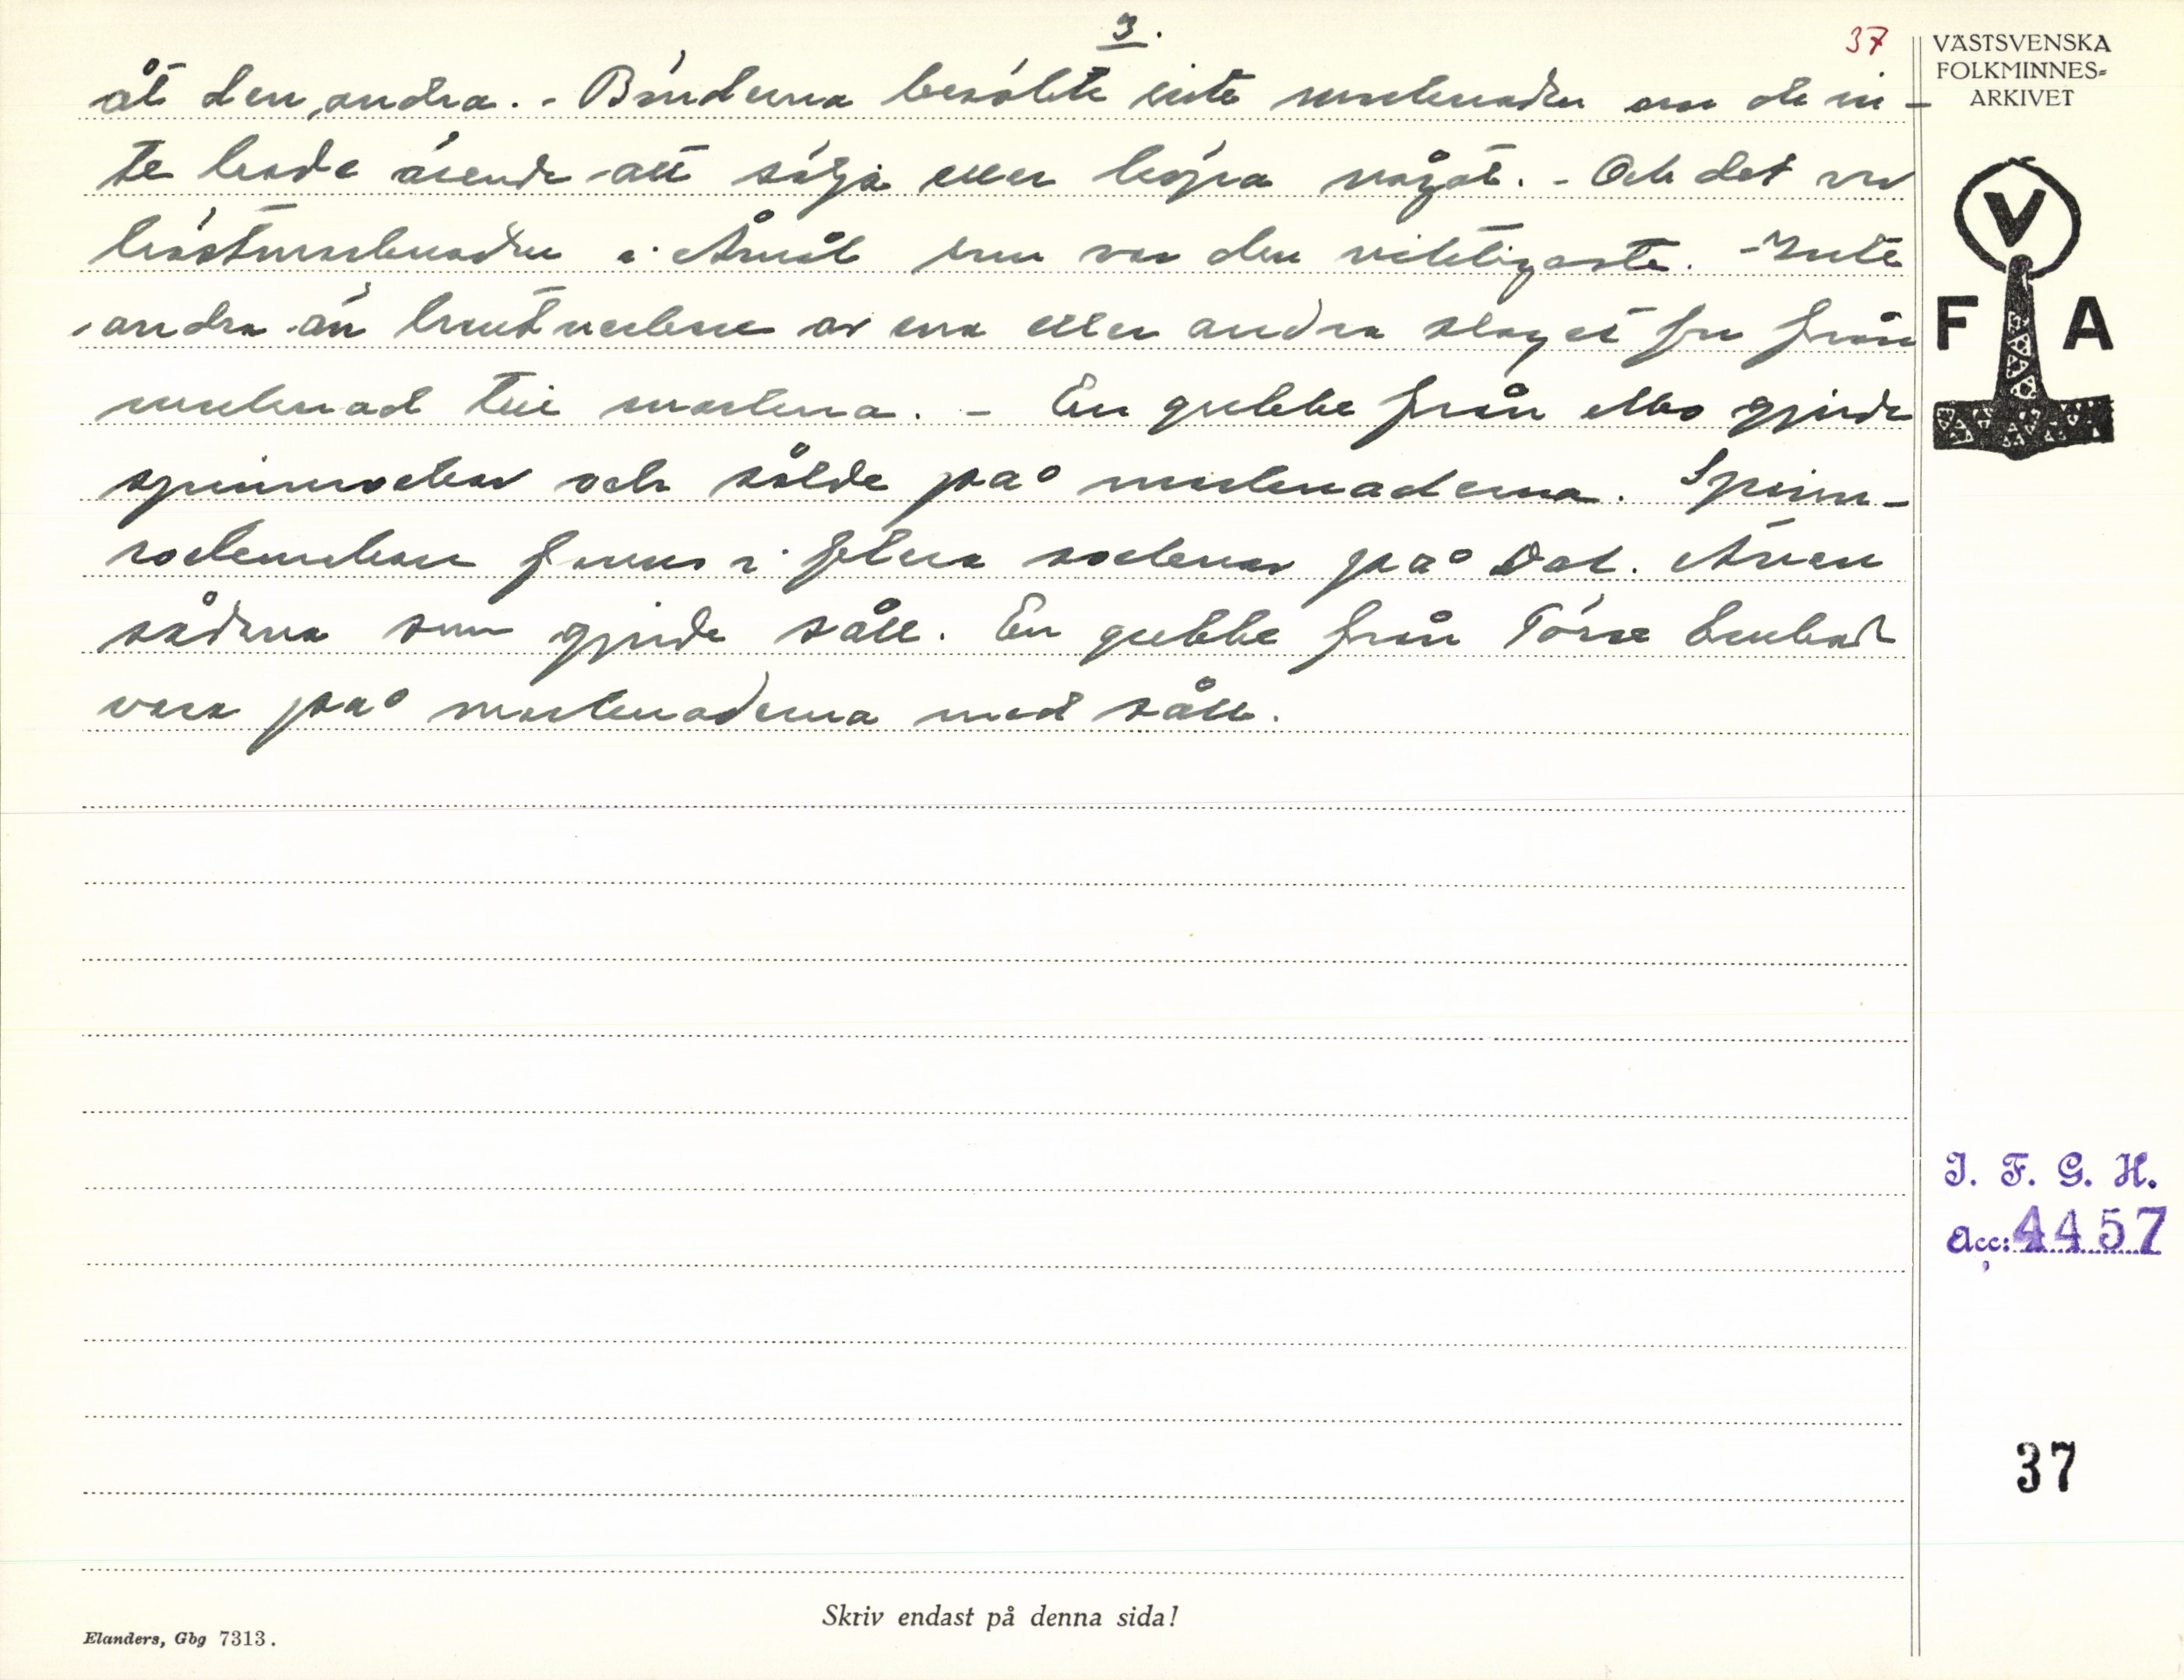 3.
37
åt den andra. - Bönderna besökte inte marknaden om de in-
te hade ärende att sälja eller köpa något. - Och det var
höstmarknaden i Åmål som var den viktigaste. - Inte
andra än hantverkare av ena eller andra slaget for från
marknad till marknad. - En gubbe från Mo gjorde
spinnrockar och sålde på marknaderna. Spinn-
rockmakare finns i flera socknar på Dal. Även
sådana som gjorde såll. En gubbe från Tösse brukade
vara på marknaderna med såll.
VÄSTSVENSKA
FOLKMINNES-
ARKIVET
V
F A
I. F. G. H.
Acc: 4457
37
Skriv endast på denna sida!
Elanders, Gbg 7313.